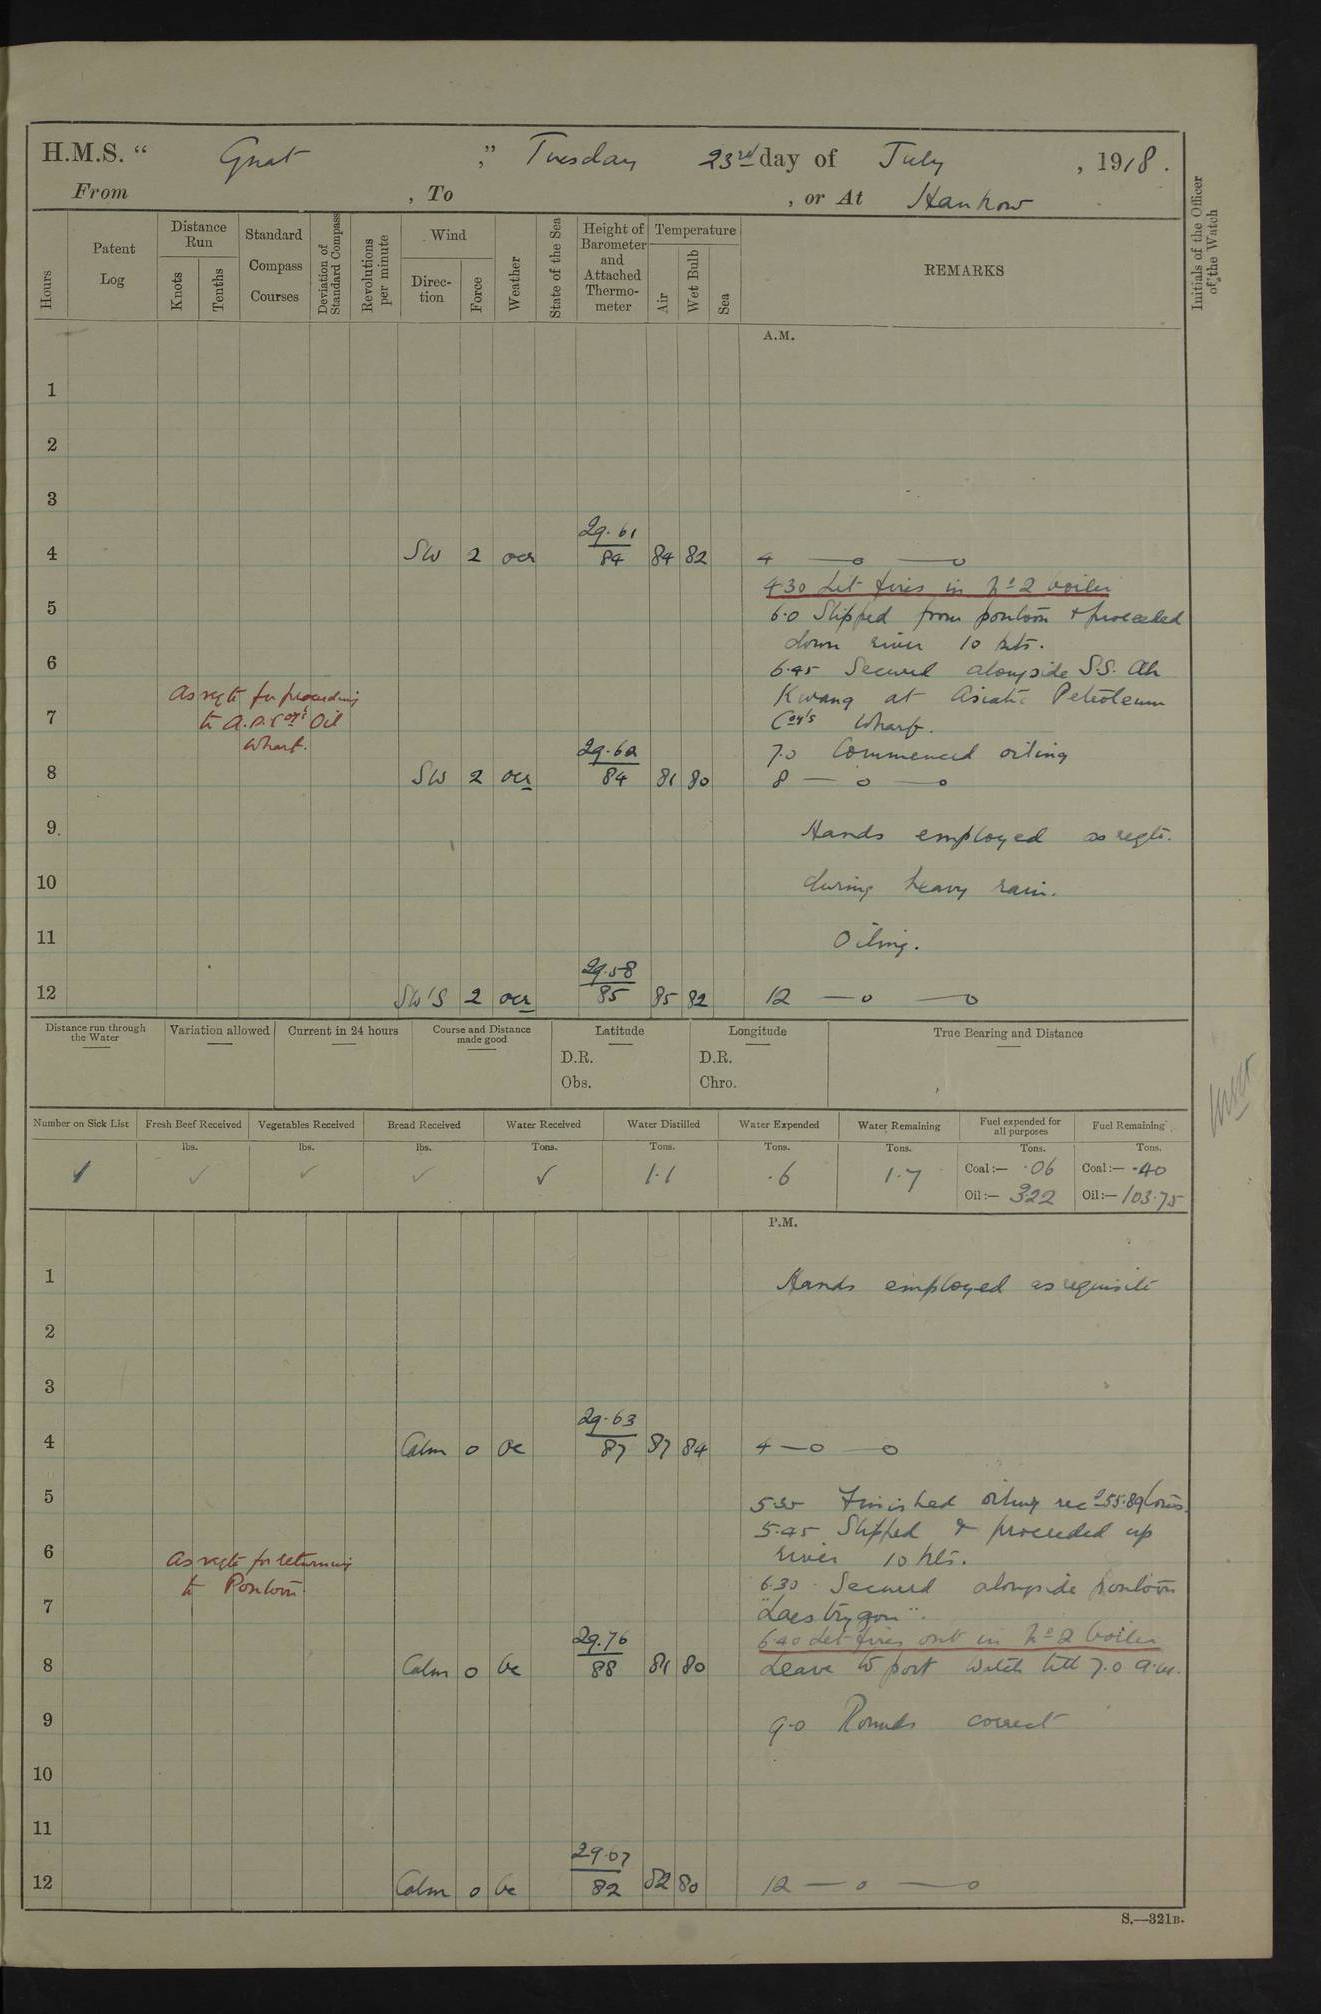 H.M.S. “ Gnat ,” Tuesday 23rd day of July , 1918.
From , To , or At Hankow
Hours
Patent Log
Distance Run
Knots
Tenths
Standard Compass Courses
Deviation of Standard Compass
Revolutions per minute
Wind
Direction
Force
Weather
State of the Sea
Height of Barometer and Attached Thermometer
Temperature
Air
Wet Bulb
Sea
REMARKS
Initials of the Officer of the Watch
A.M.
1
2
3
29.61
4 SW 2 ocr 84 84 82 4 —o —o
4.30 Let fires in No 2 boiler
5 6.0 Slipped from pontoon & proceeded
down river 10 kts.
6 6.45 Secured alongside S.S. Ah
As reqte for proceeding Kwang at Asiatic Petroleum
7 to A.P. Coy's Oil Coy's Wharf.
Wharf. 29.62 7.0 Commenced oiling
8 SW 2 ocr 84 81 80 8 — o —o
9 Hands employed as reqte.
10 during heavy rain.
11 Oiling.
29.58
12 SW'S 2 ocr 85 85 82 12 —o —o
Distance run through the Water
Variation allowed
Current in 24 hours
Course and Distance made good
Latitude
D.R.
Obs.
Longitude
D.R.
Chro.
True Bearing and Distance
Number on Sick List Fresh Beef Received Vegetables Received Bread Received Water Received Water Distilled Water Expended Water Remaining Fuel expended for all purposes Fuel Remaining
lbs. lbs. lbs. Tons. Tons. Tons. Tons. Tons. Tons.
1 ✓ ✓ ✓ ✓ 1.1 .6 1.7 Coal:— .06 Coal:— .40
Oil:— 3.22 Oil:— 103.75
P.M.
1 Hands employed as requisite
2
3
29.63
4 Calm 0 oc 87 87 84 4 —o —o
5 5.35 Finished oiling recd 55.89 tons.
5.45 Slipped & proceeded up
6 river 10 kts.
As reqte for returning 6.30 Secured alongside pontoon
to Pontoon.
7 "Laestrygon".
29.76 6.40 Let fires out in No 2 boiler
8 Calm 0 bc 88 81 80 Leave to port watch till 7.0 a.m.
9 9.0 Rounds correct
10
11
29.67
12 Calm 0 bc 82 82 80 12 — o —o
S.—321B.